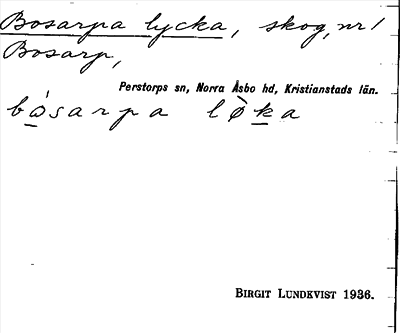 Bosarpa lycka, skog, nr 1
Bosarp,
Perstorps sn, Norra Åsbo hd, Kristianstads län.
bo̲´sarpa lø̀k̲a
BIRGIT LUNDKVIST 1936.